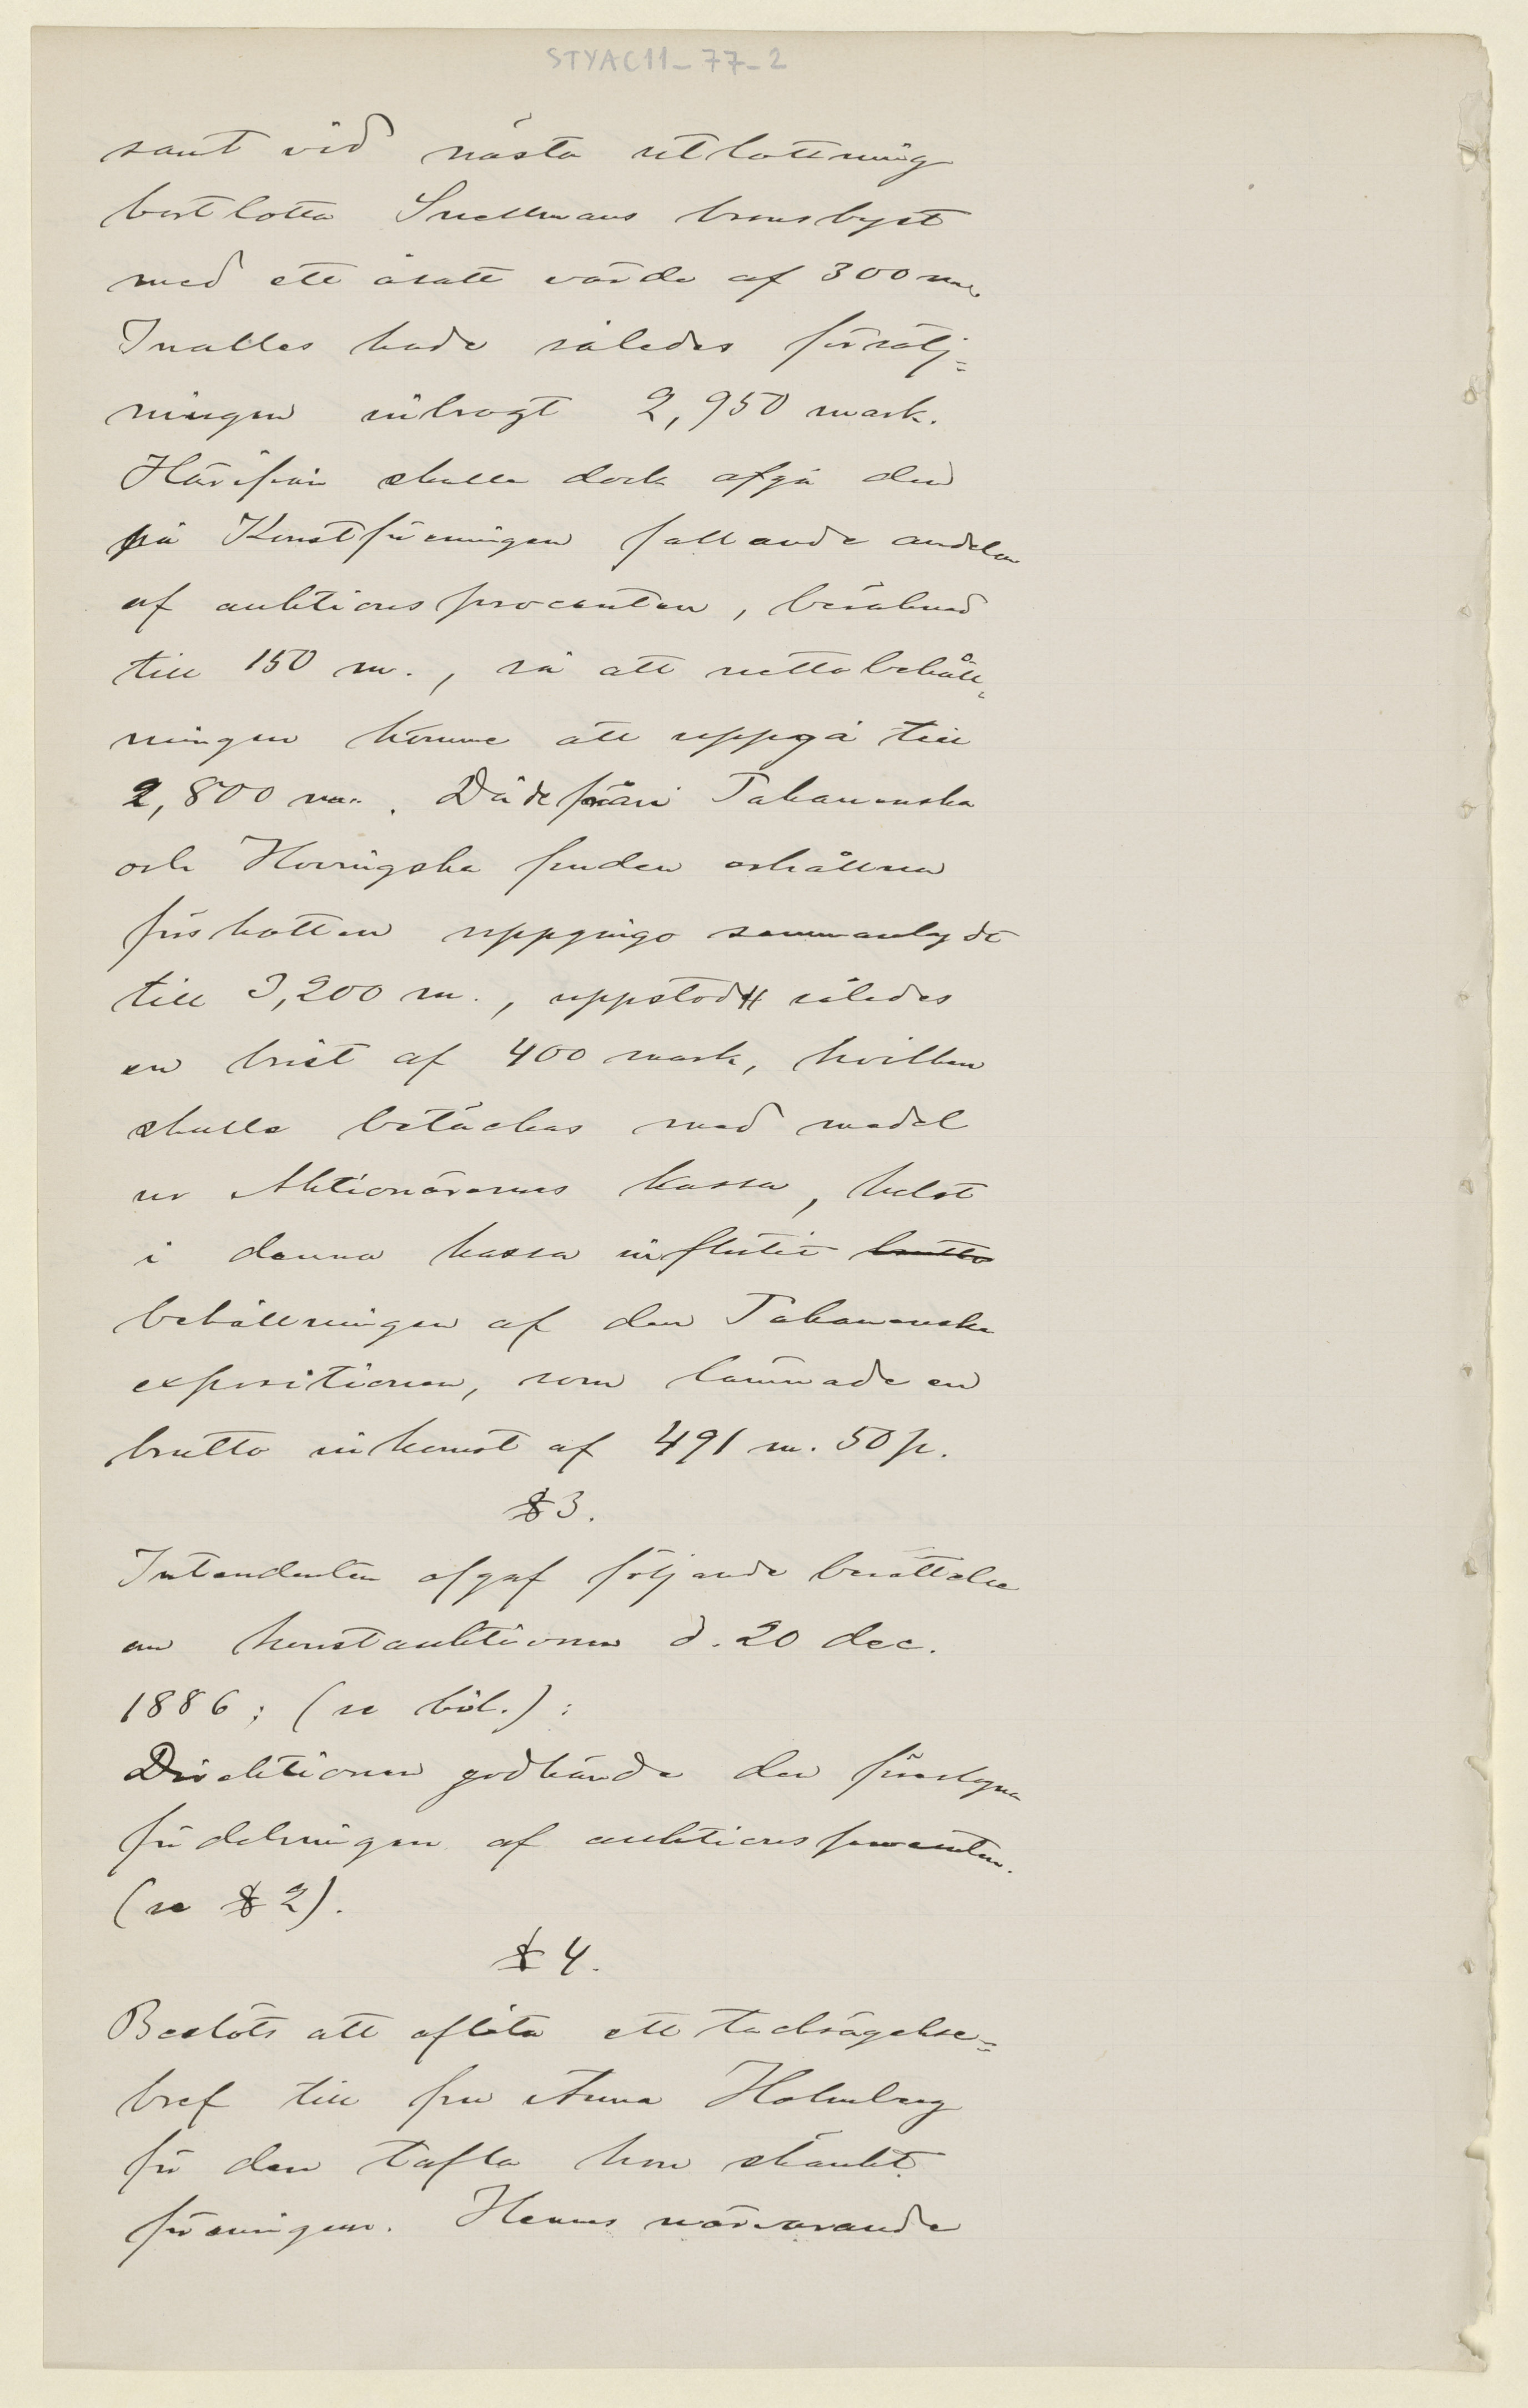 STYAC11-77-2
samt vid nästa utlottning
bortlotta Snellmans bronsbyst
med ett åsatt värde af 300 m.
Inalles hade således försälj=
ningen inbragt 2,950 mark.
Härifrån skulle dock afgå den
på Konstföreningen fallande andelen
af auktionsprocenten, beräknad
till 150 m., så att nettobehåll=
ningen komme att uppgå till
2,800 m. Då de från Takanenska
och Hovingska fonden erhållna
förskotten uppgingo sammanlagdt
till 3,200 m., uppstod således
en brist af 400 mark, hvilken
skulle betäckas med medel
ur Aktionärernes kassa, helst
i denna kassa influtit brutto
behållningen af den Takanenska
expositionen, som lämnade en
brutto inkomst af 491 m. 50 p.
§ 3.
Intendenten afgaf följande berättelse
om konstauktionen d. 20 dec.
1886; (se bil.):
Direktionen godkände den föreslagna
fördelningen af auktionsprocenten.
(se § 2).
§ 4.
Beslöts att aflåta ett tacksägelse=
bref till fru Anna Holmberg
för den tafla hon skänkt
föreningen. Hennes närvarande